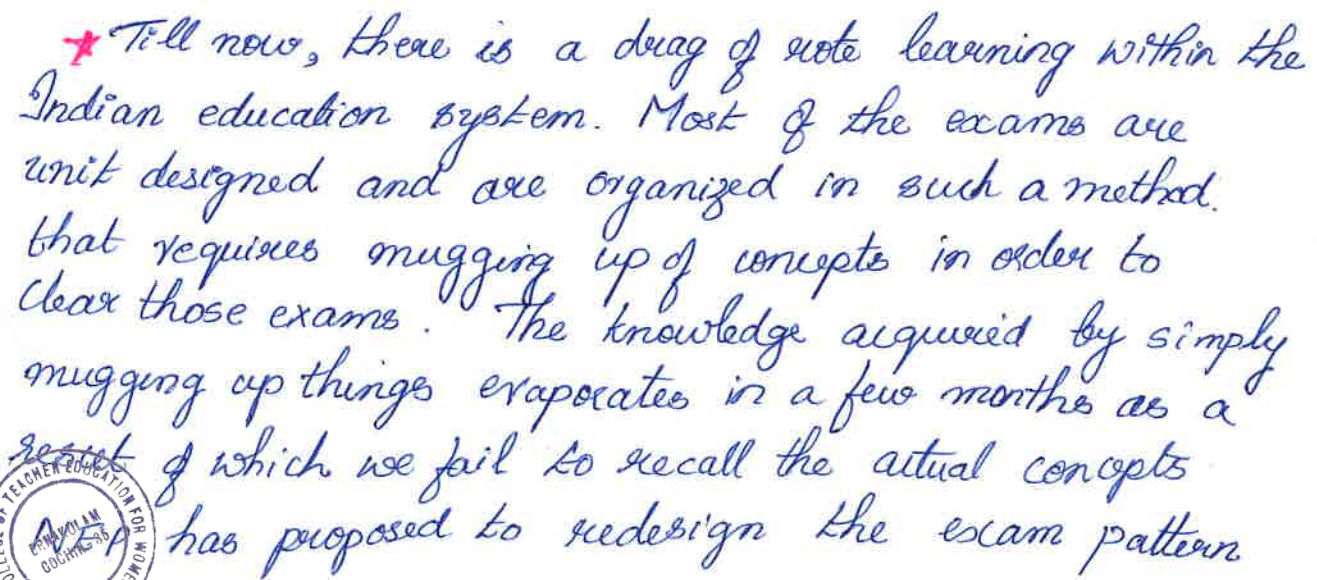 Till now, there is a drag of rote learning within the
Indian education system. Most of the exams are
unit designed and are organized in such a method.
that requires mugging up of concepts in order to
clear those exams. The knowledge acquired by simply
mugging up things evaporates in a few months as a
result of which we fail to recall the actual concepts
NEP has proposed to redesign the exam pattern
COLLEGE OF TEACHER EDUCATION FOR WOMEN
ERNAKULAM
COCHIN-35